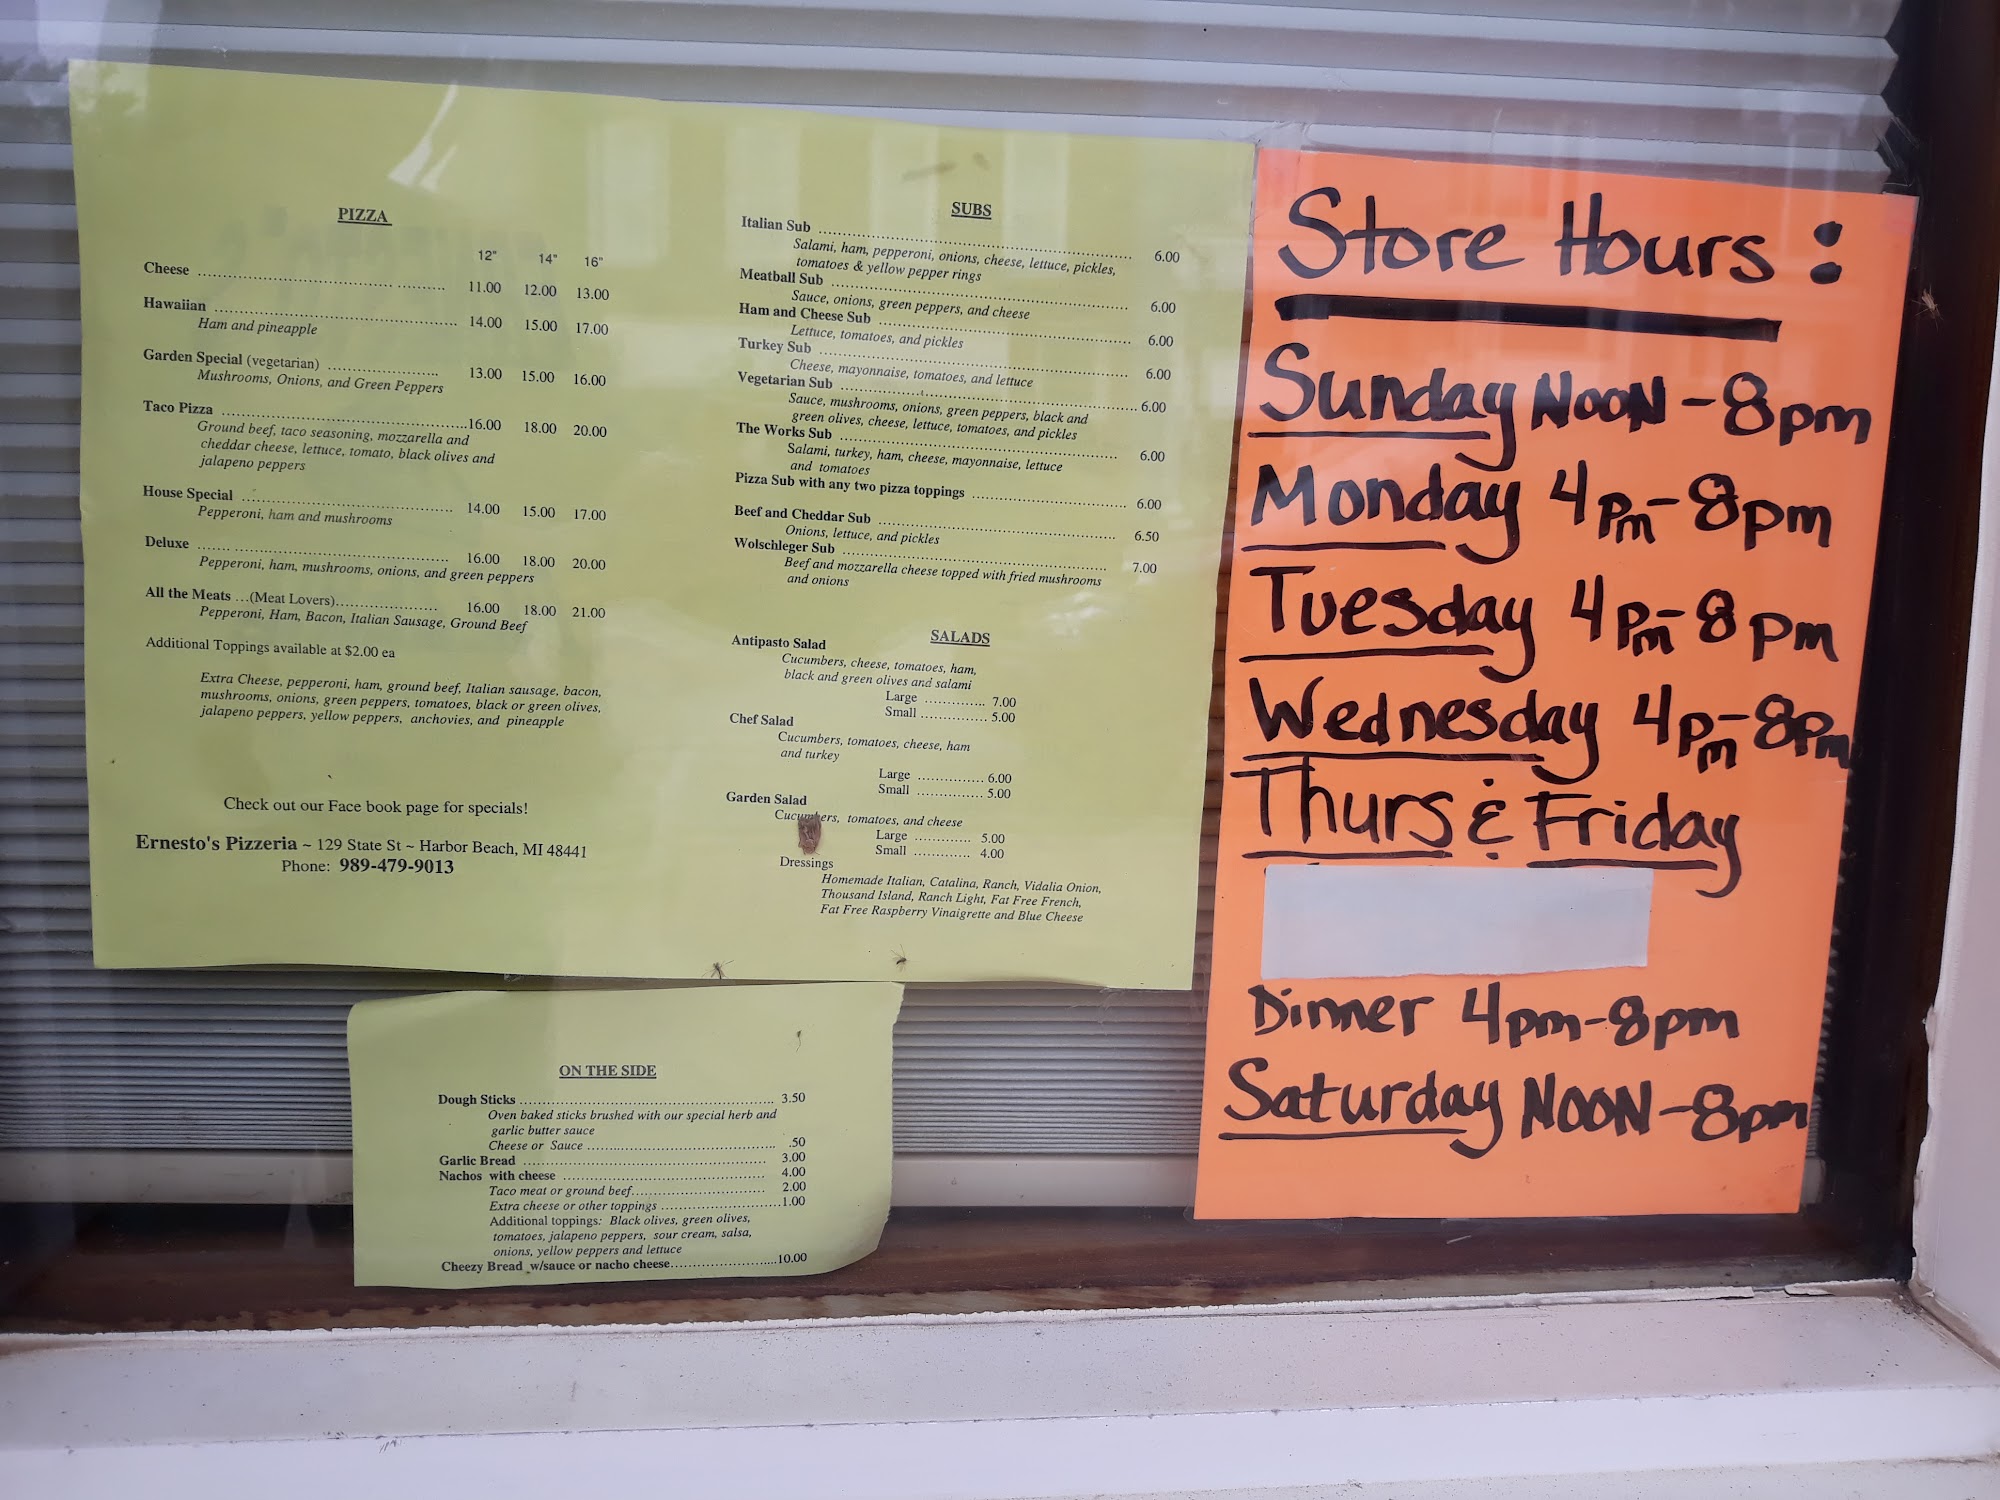 PIZZA
12" 14" 16"
Cheese .......................................... ............ 11.00 12.00 13.00
Hawaiian ............................................................ 14.00 15.00 17.00
Ham and pineapple
Garden Special (vegetarian) ........................... 13.00 15.00 16.00
Mushrooms, Onions, and Green Peppers
Taco Pizza ............................................................16.00 18.00 20.00
Ground beef, taco seasoning, mozzarella and
cheddar cheese, lettuce, tomato, black olives and
jalapeno peppers
House Special ..................................................... 14.00 15.00 17.00
Pepperoni, ham and mushrooms
Deluxe ....... ..................................................... 16.00 18.00 20.00
Pepperoni, ham, mushrooms, onions, and green peppers
All the Meats ...(Meat Lovers)......................... 16.00 18.00 21.00
Pepperoni, Ham, Bacon, Italian Sausage, Ground Beef
Additional Toppings available at $2.00 ea
Extra Cheese, pepperoni, ham, ground beef, Italian sausage, bacon,
mushrooms, onions, green peppers, tomatoes, black or green olives,
jalapeno peppers, yellow peppers, anchovies, and pineapple
Check out our Face book page for specials!
Ernesto's Pizzeria ~ 129 State St ~ Harbor Beach, MI 48441
Phone: 989-479-9013
SUBS
Italian Sub ............................................................................ 6.00
Salami, ham, pepperoni, onions, cheese, lettuce, pickles,
tomatoes & yellow pepper rings
Meatball Sub ......................................................................... 6.00
Sauce, onions, green peppers, and cheese
Ham and Cheese Sub ............................................................. 6.00
Lettuce, tomatoes, and pickles
Turkey Sub ........................................................................... 6.00
Cheese, mayonnaise, tomatoes, and lettuce
Vegetarian Sub ...................................................................... 6.00
Sauce, mushrooms, onions, green peppers, black and
green olives, cheese, lettuce, tomatoes, and pickles
The Works Sub ..................................................................... 6.00
Salami, turkey, ham, cheese, mayonnaise, lettuce
and tomatoes
Pizza Sub with any two pizza toppings ..................................... 6.00
Beef and Cheddar Sub ........................................................... 6.50
Onions, lettuce, and pickles
Wolschleger Sub ................................................................... 7.00
Beef and mozzarella cheese topped with fried mushrooms
and onions
SALADS
Antipasto Salad
Cucumbers, cheese, tomatoes, ham,
black and green olives and salami
Large .............. 7.00
Small ............... 5.00
Chef Salad
Cucumbers, tomatoes, cheese, ham
and turkey
Large ............... 6.00
Small ............... 5.00
Garden Salad
Cucumbers, tomatoes, and cheese
Large ............. 5.00
Small ............. 4.00
Dressings
Homemade Italian, Catalina, Ranch, Vidalia Onion,
Thousand Island, Ranch Light, Fat Free French,
Fat Free Raspberry Vinaigrette and Blue Cheese
ON THE SIDE
Dough Sticks ............................................................ 3.50
Oven baked sticks brushed with our special herb and
garlic butter sauce
Cheese or Sauce ............................................ .50
Garlic Bread ........................................................... 3.00
Nachos with cheese ................................................ 4.00
Taco meat or ground beef................................ 2.00
Extra cheese or other toppings ............................1.00
Additional toppings: Black olives, green olives,
tomatoes, jalapeno peppers, sour cream, salsa,
onions, yellow peppers and lettuce
Cheezy Bread w/sauce or nacho cheese..........................10.00
Store Hours:
Sunday NOON - 8pm
Monday 4pm - 8pm
Tuesday 4pm - 8pm
Wednesday 4pm - 8pm
Thurs & Friday
Dinner 4pm - 8pm
Saturday NOON - 8pm